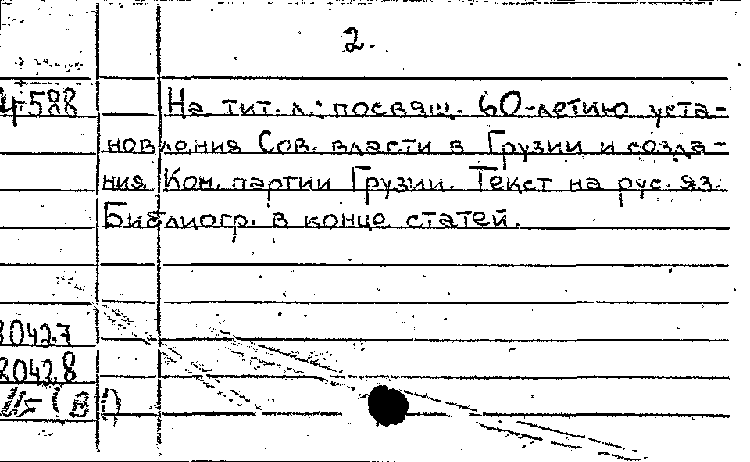 2.
4-588 На тит. л.: посвящ. 60-летию уста-
новления Сов. власти в Грузии и созда-
ния Ком. партии Грузии. Текст на рус. яз.
Библиогр. в конце статей.
80427
80428